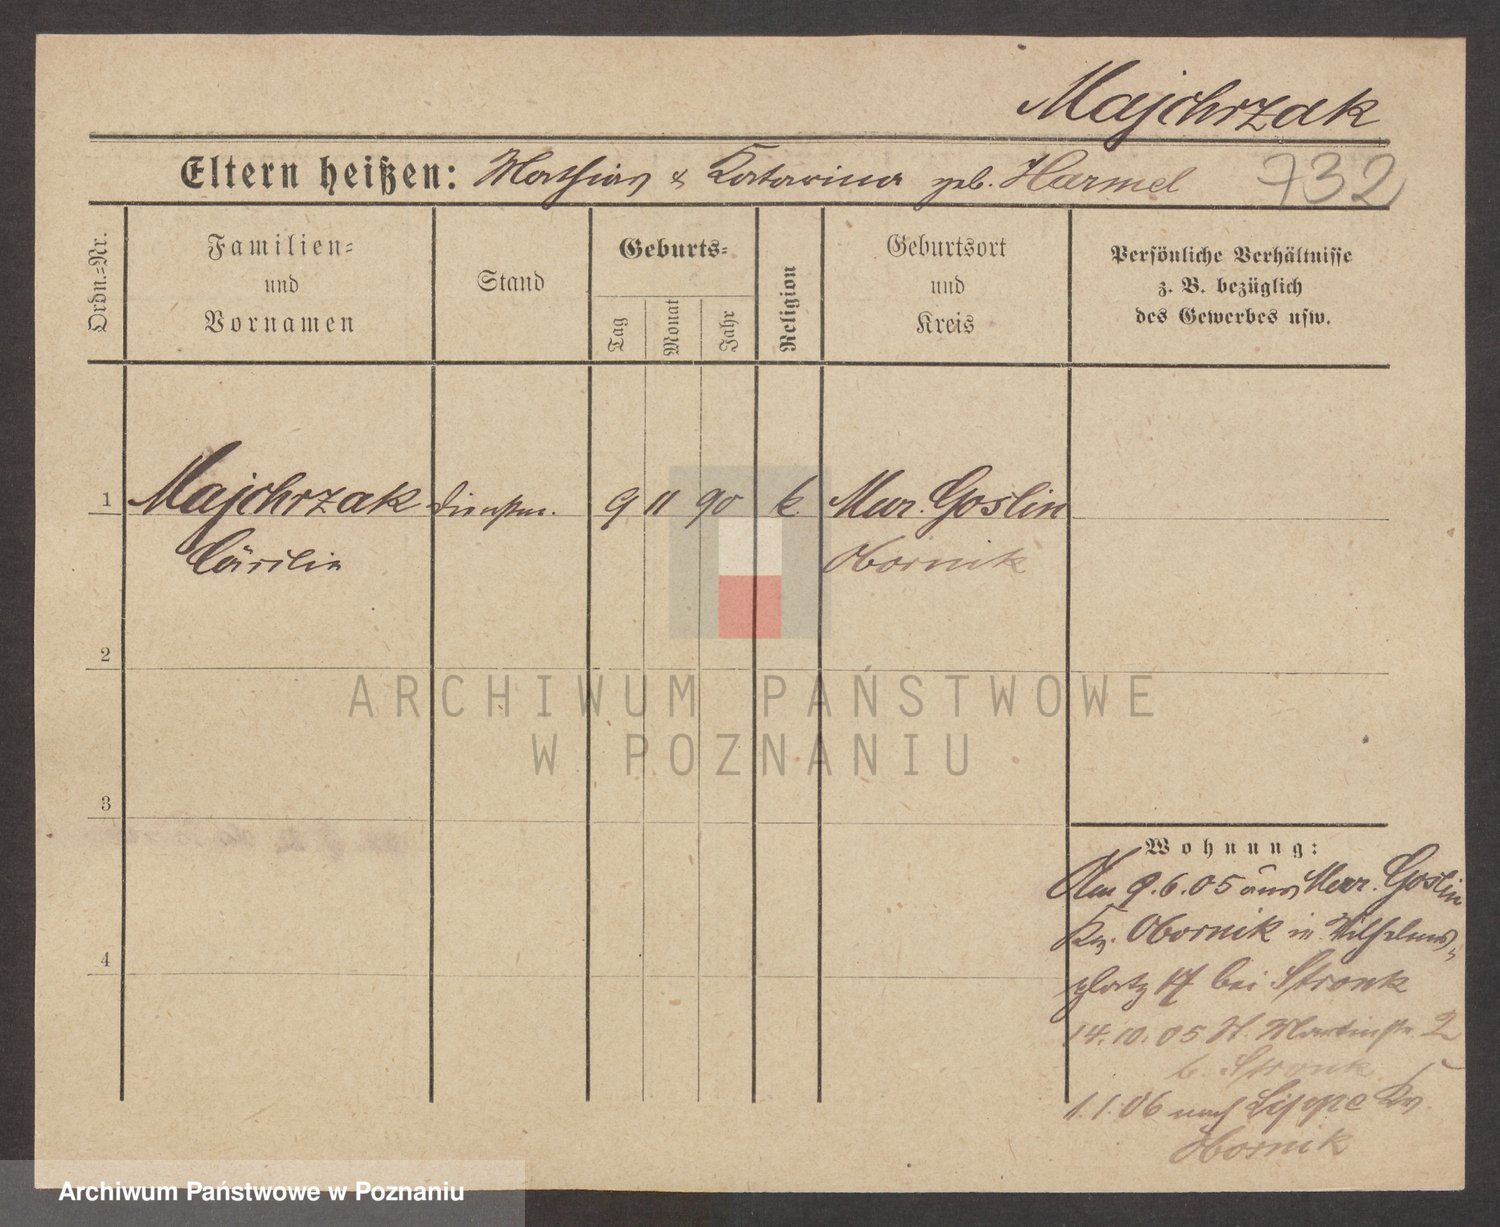 Majchrzak
Eltern heißen: Mathias & Katarina geb. Harmel 732
Ordn.=Nr.
Familien=
und
Vornamen
Stand
Geburts=
Tag
Monat
Jahr
Religion
Geburtsort
und
Kreis
Persönliche Verhältnisse
z. B. bezüglich
des Gewerbes usw.
1 Majchrzak Dienstm. 9 11 90 k Mur. Goslin
Cäcilia Obornik
2
ARCHIWUM PAŃSTWOWE
W POZNANIU
3
Wohnung:
Am 9.6.05 aus Mur. Goslin
Kr. Obornik in Wilhelms=
platz 17 bei Stronk
14.10.05 St. Martinstr. 2
b. Stronk
1.1.06 nach Kr.
Obornik
4
Archiwum Państwowe w Poznaniu